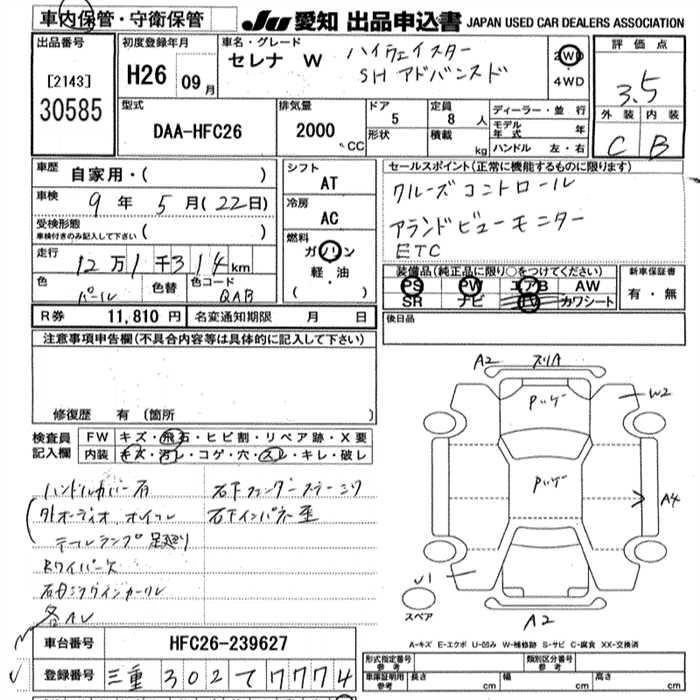 車内保管・守衛保管
JU 愛知 出品申込書 JAPAN USED CAR DEALERS ASSOCIATION
出品番号
[2143]
30585
初度登録年月
H26 09月
車名・グレード
セレナ W ハイウェイスター
SH アドバンスド
2WD
・
4WD
評価点
3.5
外装 内装
C B
型式
DAA-HFC26
排気量
2000
CC
ドア
5
形状
定員
8 人
積載
kg
ディーラー・並行
モデル年式 年
ハンドル 左・右
車歴
自家用・( )
車検
9年 5月(22日)
受検形態
車検付きのみ記入して下さい ( )
走行
12万1千314km
色
パール
色替
色コード
QAB
シフト
AT
冷房
AC
燃料
ガソリン
・
軽・油
( )
セールスポイント(正常に機能するものに限ります)
クルーズコントロール
アランドビューモニター
ETC
装備品(純正品に限り○をつけてください)
PS PW エアB AW
SR ナビ TV カワシート
新車保証書
有・無
R券 11,810円 名変通知期限 月 日
後日品
注意事項申告欄(不具合内容等は具体的に記入して下さい)
修復歴 有 (箇所 )
検査員
記入欄
FW キズ・飛石・ヒビ割・リペア跡・X要
内装 キズ・汚レ・コゲ・穴・スレ・キレ・破レ
ハンドルカバー有
外オーディオ、ホイール
テールランプ 足廻り
Rワイパー欠
各スレ
A2
W2
A4
U1
A2
スペア
A-キズ E-エクボ U-凹み W-補修跡 S-サビ C-腐食 XX-交換済
車台番号 HFC26-239627
登録番号 三重 302 て 7774
形式指定番号
参考
類別区分番号
参考
車庫証明用
参考
長さ cm
幅 cm
高さ cm